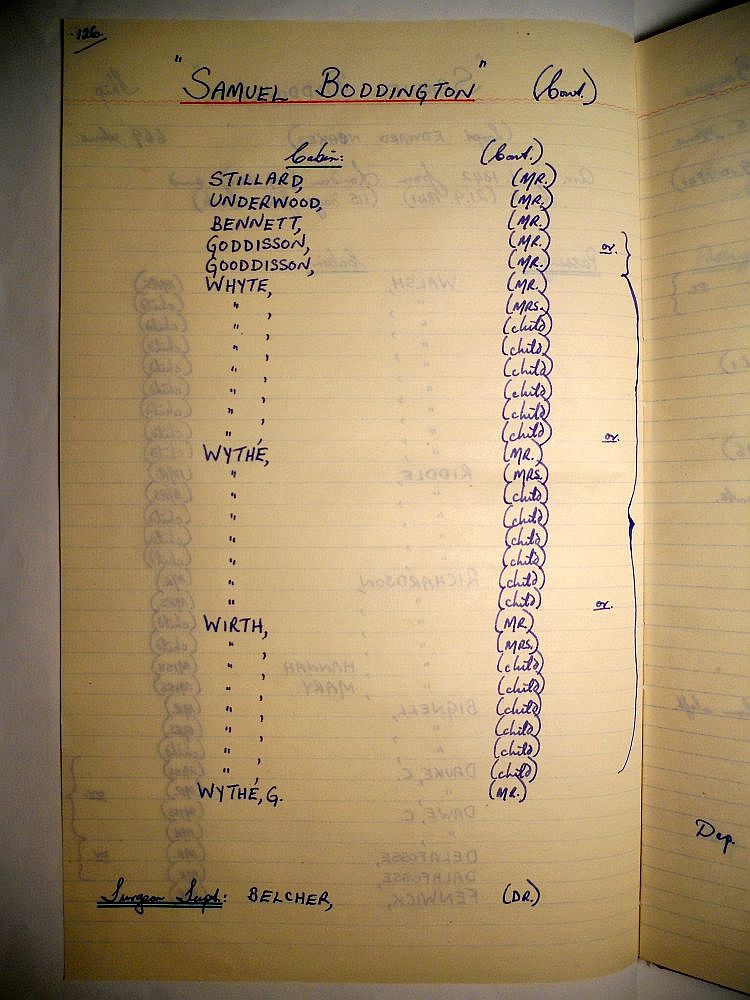 126.
"SAMUEL BODDINGTON" (Cont.)
Cabin: (Cont.)
STILLARD, (MR.)
UNDERWOOD, (MR.)
BENNETT, (MR.)
GODDISSON, (MR.) or.
GOODDISSON, (MR.)
WHYTE, (MR.)
" , (MRS.)
" , (child)
" , (child)
" , (child)
" , (child)
" , (child)
" , (child) or.
WYTHE, (MR.)
" , (MRS.)
" , (child)
" , (child)
" , (child)
" , (child)
" , (child)
" , (child) or.
WIRTH, (MR.)
" , (MRS.)
" , (child)
" , (child)
" , (child)
" , (child)
" , (child)
" , (child)
WYTHE, G. (MR.)
Surgeon Supt: BELCHER, (DR.)
Dep.